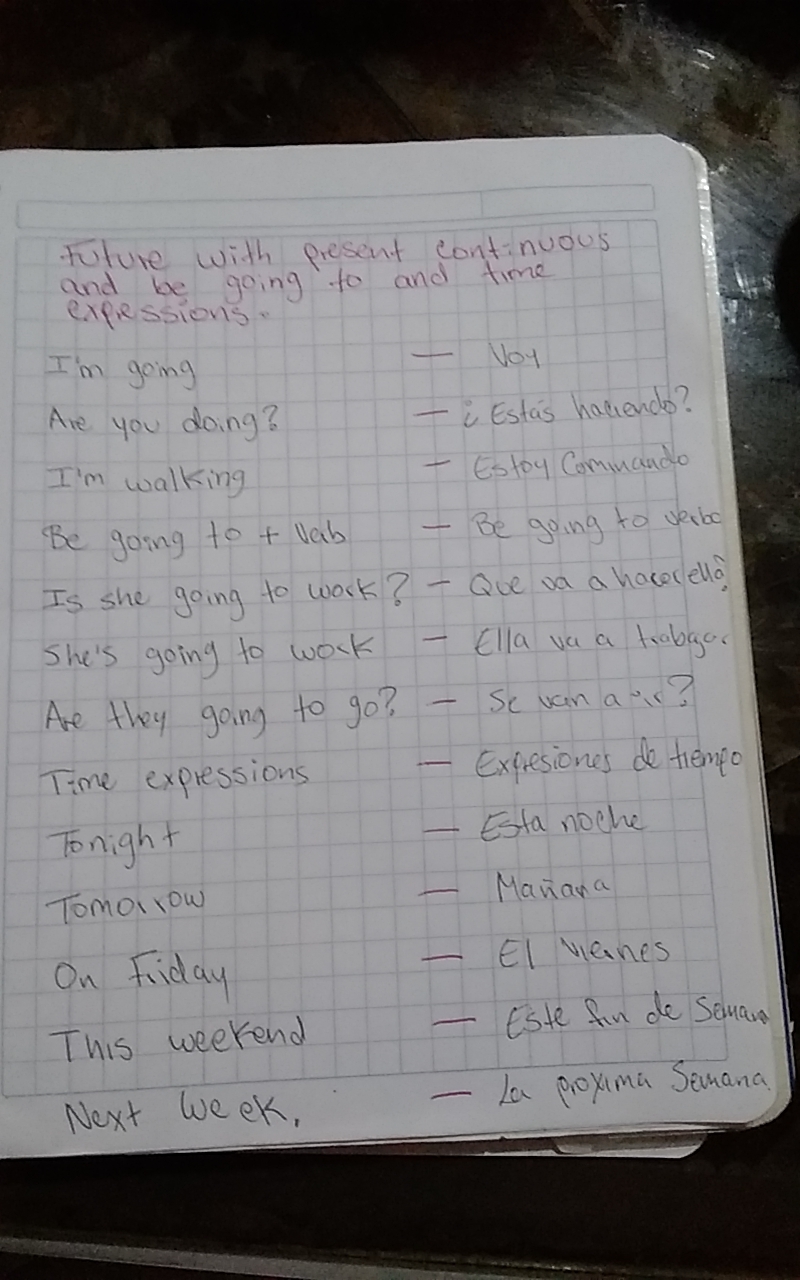 Future with present continuous
and be going to and time
expessions.
I'm going — Voy
Are you doing? — ¿Estás haciendo?
I'm walking — Estoy Caminando
Be going to + Verb — Be going to verbo
Is she going to work? — Que va a hacer ella?
She's going to work — Ella va a trabajar
Are they going to go? — Se van a ir?
Time expressions — Expresiones de tiempo
Tonight — Esta noche
Tomorrow — Mañana
On Friday — El Viernes
This weekend — Este fin de Semana
Next Week. — La proxima Semana